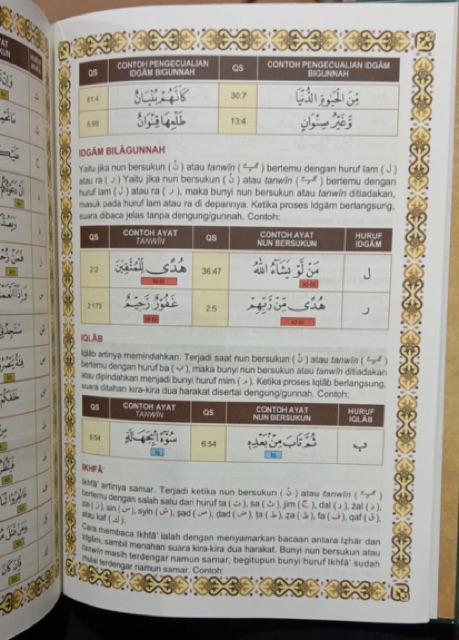 QS CONTOH PENGECUALIAN IDGĀM BIGUNNAH QS CONTOH PENGECUALIAN IDGĀM BIGUNNAH
61:4 كَأَنَّهُمْ بُنْيَانٌ 30:7 مِنَ الْحَيٰوةِ الدُّنْيَا
6:99 طَلْعِهَا قِنْوَانٌ 13:4 وَغَيْرُ صِنْوَانٍ
IDGĀM BILĀGUNNAH
Yaitu jika nun bersukun ( نْ ) atau tanwīn ( ـًـٍـٌ ) bertemu dengan huruf lam ( ل )
atau ra ( ر ) Yaitu jika nun bersukun ( نْ ) atau tanwīn ( ـًـٍـٌ ) bertemu dengan
huruf lam ( ل ) atau ra ( ر ), maka bunyi nun bersukun atau tanwīn ditiadakan,
masuk pada huruf lam atau ra di depannya. Ketika proses Idgām berlangsung,
suara dibaca jelas tanpa dengung/gunnah. Contoh:
QS CONTOH AYAT TANWĪN QS CONTOH AYAT NUN BERSUKUN HURUF IDGĀM
2:2 هُدًى لِلْمُتَّقِيْنَ 36:47 مَنْ لَّوْ يَشَاۤءُ اللّٰهُ ل
2:173 غَفُوْرٌ رَّحِيْمٌ 2:5 هُدًى مِّنْ رَّبِّهِمْ ر
IQLĀB
Iqlāb artinya memindahkan. Terjadi saat nun bersukun ( نْ ) atau tanwīn ( ـًـٍـٌ )
bertemu dengan huruf ba ( ب ), maka bunyi nun bersukun atau tanwīn ditiadakan
atau dipindahkan menjadi bunyi huruf mim ( م ). Ketika proses Iqlāb berlangsung,
suara ditahan kira-kira dua harakat disertai dengung/gunnah. Contoh:
QS CONTOH AYAT TANWĪN QS CONTOH AYAT NUN BERSUKUN HURUF IQLĀB
6:54 سُوْۤءًا بِجَهَالَةٍ 6:54 ثُمَّ تَابَ مِنْ بَعْدِهٖ ب
IKHFĀ'
Ikhfā' artinya samar. Terjadi ketika nun bersukun ( نْ ) atau tanwīn ( ـًـٍـٌ )
bertemu dengan salah satu dari huruf ta ( ت ), sa ( ث ), jim ( ج ), dal ( د ), żal ( ذ ),
za ( ز ), sin ( س ), syin ( ش ), ṣad ( ص ), ḍad ( ض ), ṭa ( ط ), ẓa ( ظ ), fa ( ف ), qaf ( ق ),
atau kaf ( ك ).
Cara membaca Ikhfā' ialah dengan menyamarkan bacaan antara Iẓhār dan
Idgām, sambil menahan suara kira-kira dua harakat. Bunyi nun bersukun atau
tanwīn masih terdengar namun samar, begitupun bunyi huruf Ikhfā' sudah
mulai terdengar namun samar. Contoh: